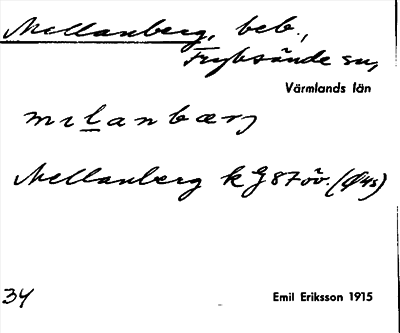 Mellanberg, beb.,
Fryksände sn,
Värmlands län
mɩlanbærj
Mellanberg k GS7öv. (Ø4s)
34
Emil Eriksson 1915